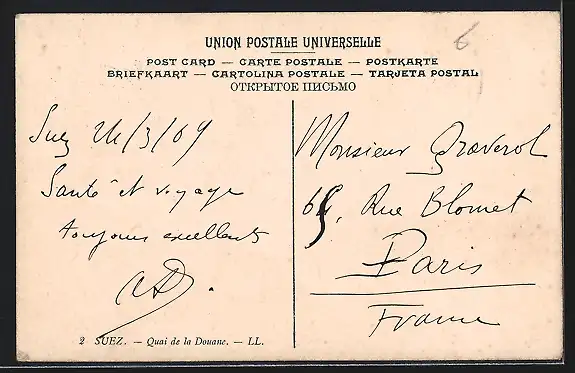 UNION POSTALE UNIVERSELLE
POST CARD — CARTE POSTALE — POSTKARTE
BRIEFKAART — CARTOLINA POSTALE — TARJETA POSTAL
ОТКРЫТОЕ ПИСЬМО
6
Suez 24/3/09
Santé et voyage
toujours excellents
AD.
Monsieur Graverol
65, Rue Blomet
Paris
France
2 SUEZ. — Quai de la Douane. — LL.